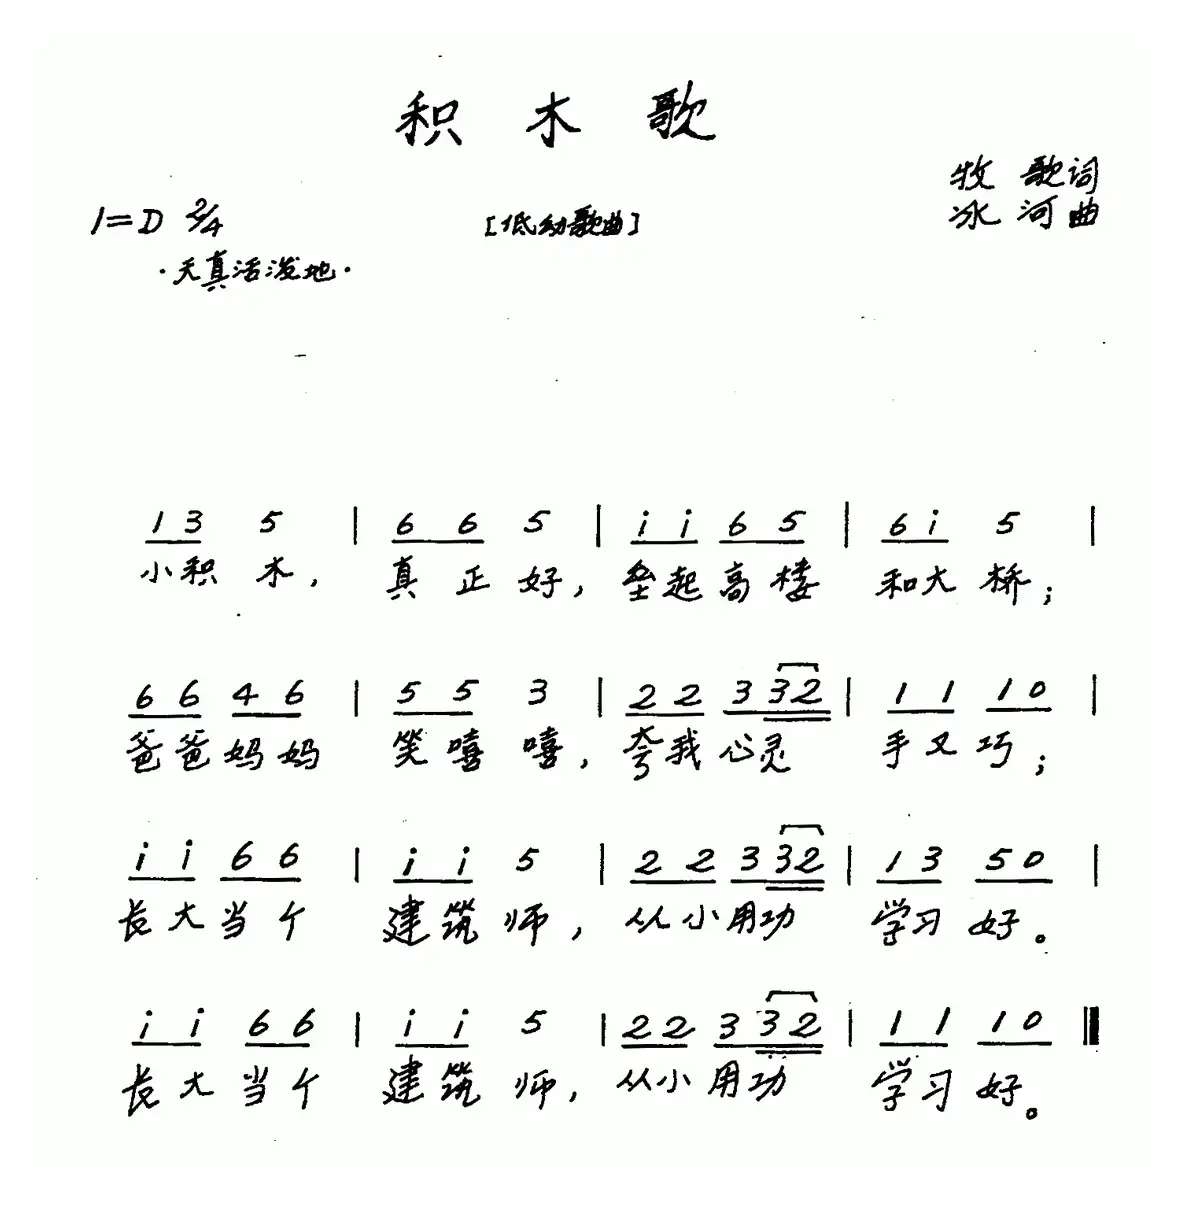 积木歌
牧歌词
1=D 2/4 [低幼歌曲] 冰河曲
·天真活泼地·
1 3 5 | 6 6 5 | i i 6 5 | 6 i 5 |
小积木, 真正好, 垒起高楼 和大桥;
6 6 4 6 | 5 5 3 | 2 2 3 3 2 | 1 1 1 0 |
爸爸妈妈 笑嘻嘻, 夸我心灵 手又巧;
i i 6 6 | i i 5 | 2 2 3 3 2 | 1 3 5 0 |
长大当个 建筑师, 从小用功 学习好。
i i 6 6 | i i 5 | 2 2 3 3 2 | 1 1 1 0 ‖
长大当个 建筑师, 从小用功 学习好。